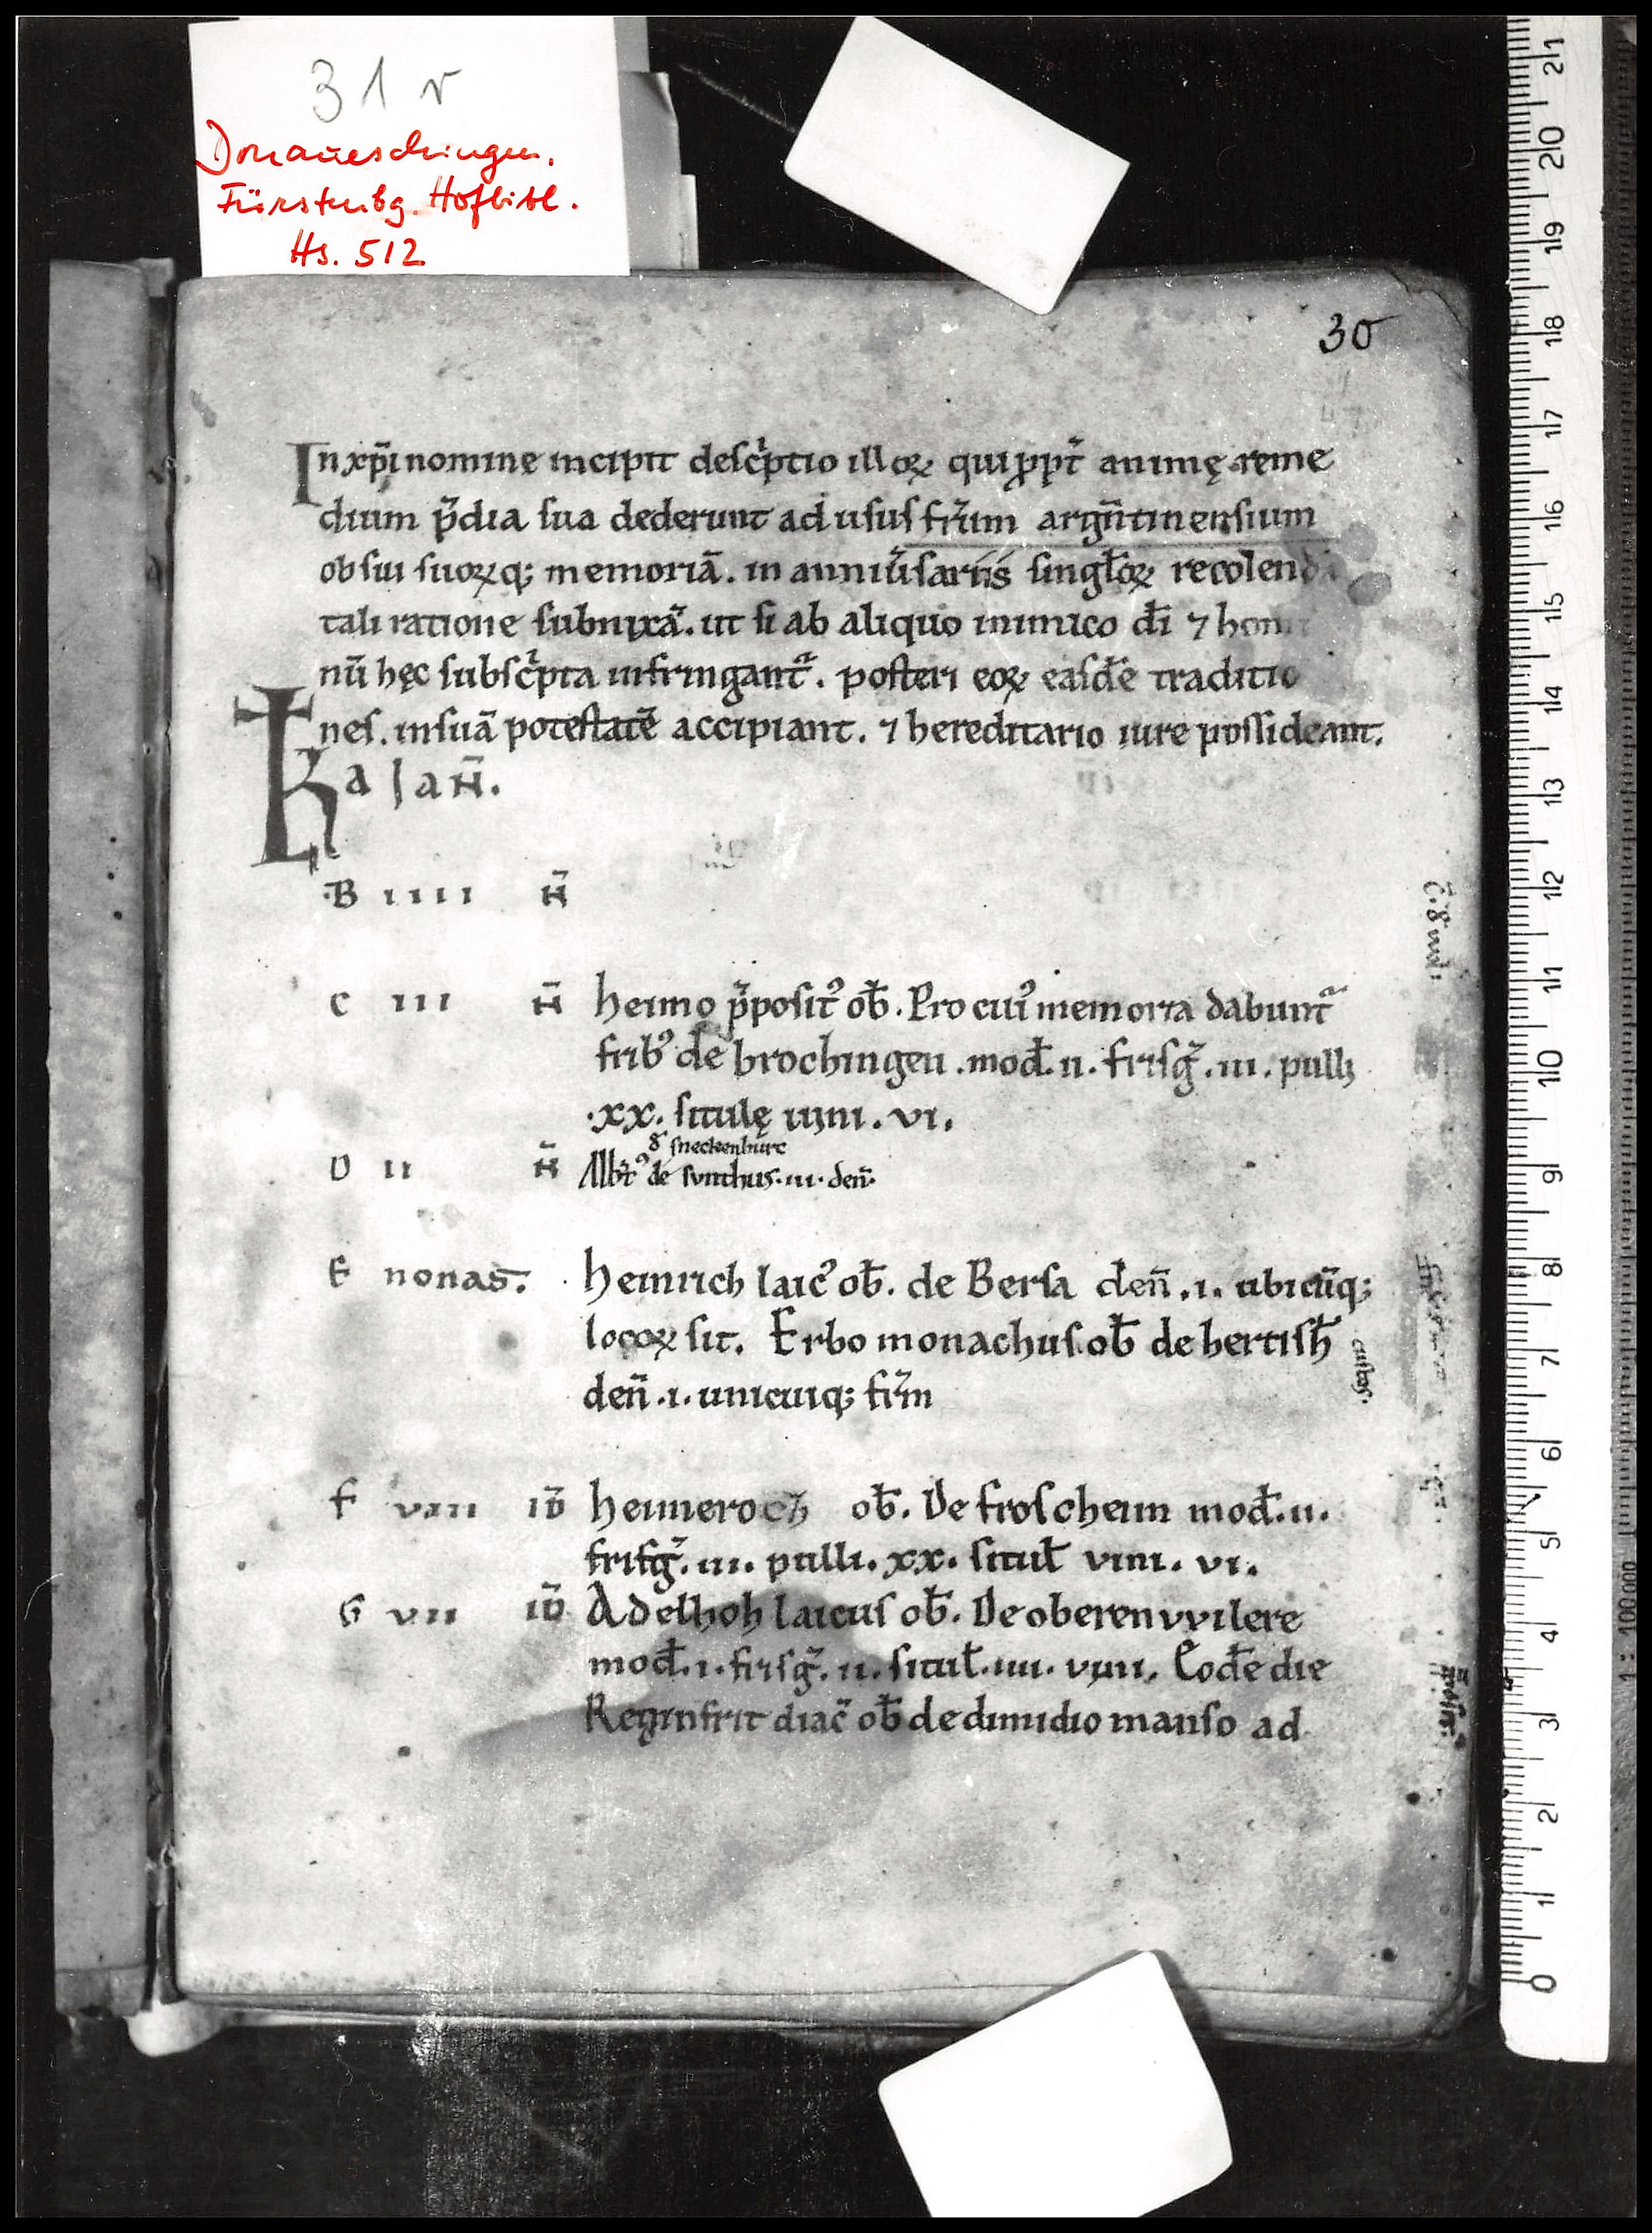 31 r
Donaueschingen.
Fürstenbg. Hofbibl.
Hs. 512
30
In xp̄i nomine incipit desc̓ptio illoꝝ qui ꝓpt̄ animę reme
dium p̄dia sua dederunt ad usus fr̄um argn̄tinensium
ob sui suoꝝq; memoriā. in anniu̓sariis singl̓oꝝ recolenda
tali ratione subnixā. ut si ab aliquo inimico dī ⁊ homi
nū hęc subsc̓pta infringant᷑. posteri eoꝝ easdē traditio
nes. in suā potestatē accipiant. ⁊ hereditario iure possideant.
Kal̄ aN̄.
B IIII N̄
C III N̄ heimo p̄posit᷒ ob̄. Pro cui᷒ memoria dabunt᷑
frib᷒ de brochingen .mod̄. ii. frisḡ. iii. pulli
.xx. situlę uini. vi.
sneckenburc
D II N̄ Alb̓t᷒ de sunthus. iii. den̄.
E nonas. heinrich laic᷒ ob̄. de Bersa den̄ .i. ubicūq;
locoꝝ sit. Erbo monachus ob̄ de bertish̄
custos.
den̄ .i. unicuiq; fr̄m
F VIII ID̄ heimeroch ob̄. De froscheim mod̄. ii.
frisḡ. iii. pulli. xx. situl̄ vini. vi.
G VII ID̄ Adelhoh laicus ob̄. De oberenvvilere
mod̄. i. frisḡ. ii. situl̄. iiii. vini. Eodē die
Reginfrit diac̄ ob̄ de dimidio manso ad
0 1 2 3 4 5 6 7 8 9 10 11 12 13 14 15 16 17 18 19 20 21
1 : 100 000